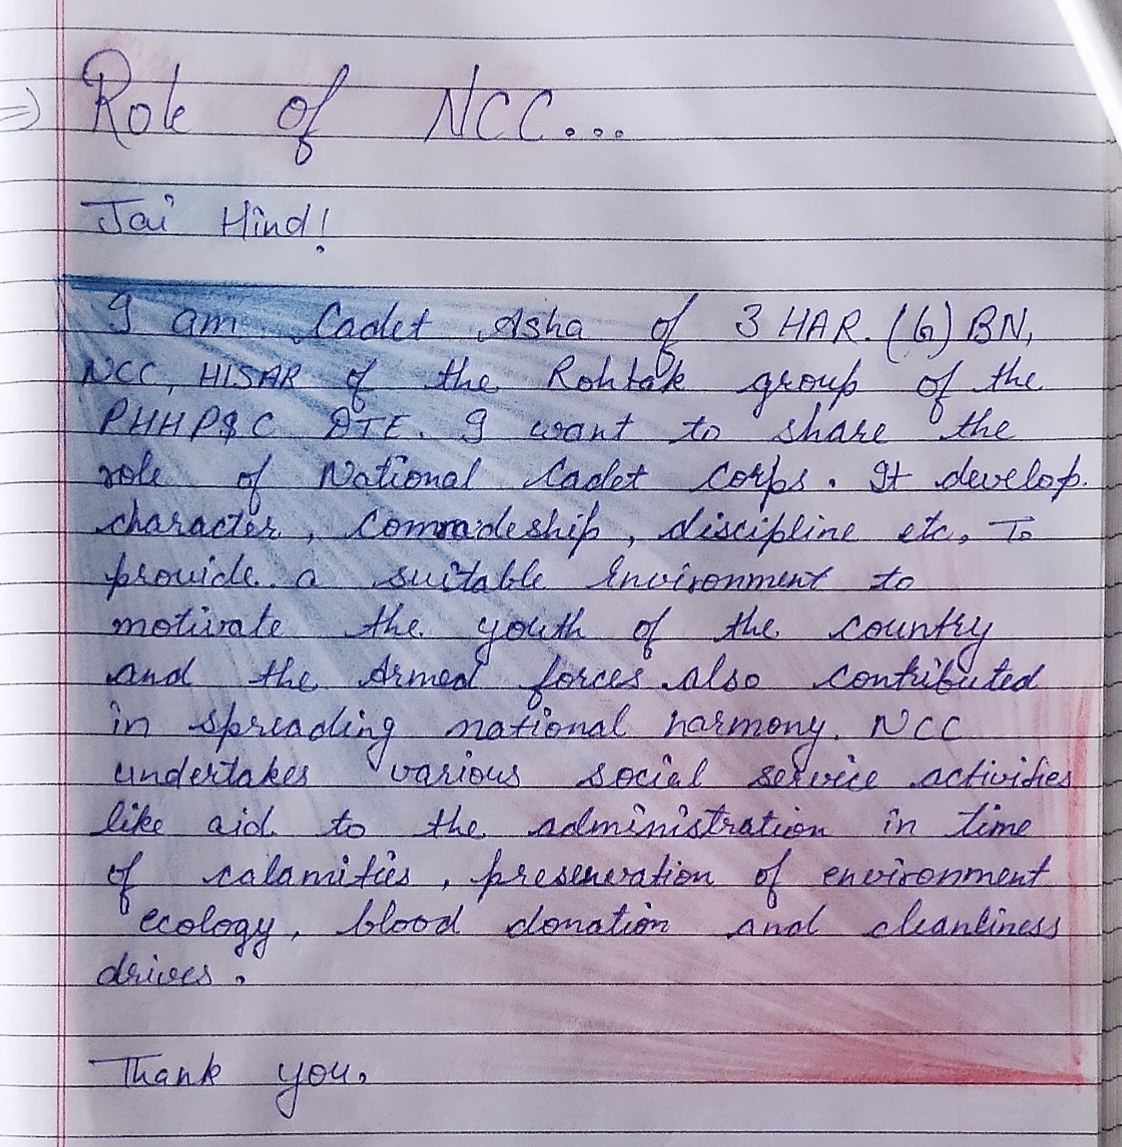 => Role of NCC...
Jai Hind!
I am Cadet Asha of 3 HAR. (G) BN,
NCC, HISAR of the Rohtak group of the
PHHP&C DTE. I want to share the
role of National Cadet Corps. It develop
character, Comradeship, discipline etc, To
provide a suitable Environment to
motivate the youth of the country
and the Armed forces also contributed
in spreading national harmony. NCC
undertakes various social service activities
like aid to the administration in time
of calamities, preservation of environment
ecology, blood donation and cleanliness
drives.
Thank you.